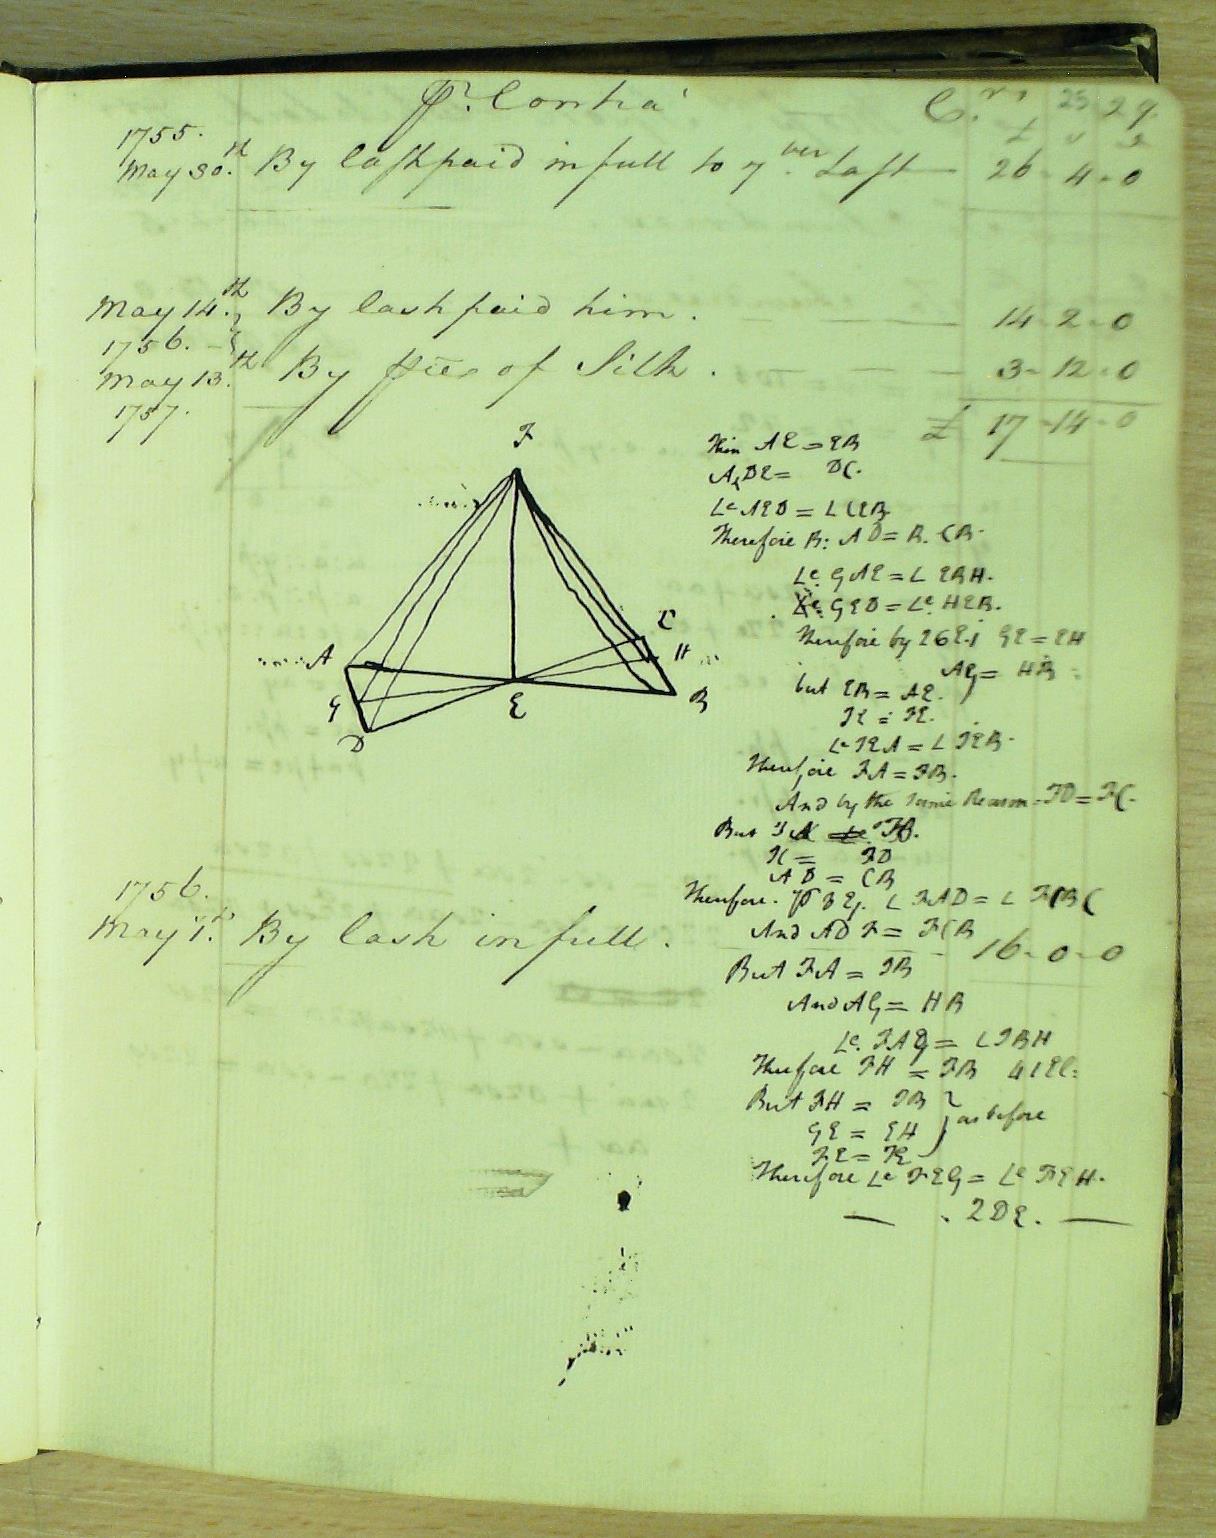 Pr. Contra Crs 25 29
£ s d
1755.
May 30.th By Cash paid in full to 7.ber Last 26 - 4 - 0
May 14.th By Cash paid him. 14 - 2 - 0
1756.
May 13.th By of Silk. 3 - 12 - 0
1757. £ 17 - 14 - 0
F
A
G
D
E
C
H
B
Then AE = EB
DE = DC.
Le AED = L CEB
Therefore B: AD = B. CB.
Le GAE = L EBH.
Le GED = Le HEB.
Therefore by 26E.1 GE = EH
AG = HB
but EB = AE.
FE = FE.
Le FEA = L FEB.
Therefore FA = FB.
And by the same Reason FD = FC.
But FB.
FC = FD
AD = CB
Therefore. L FAD = L FBC
And ADF = FCB
1756.
May 1.st By Cash in full. 16 - 0 - 0
But FA = FB
And AG = HB
Le. FAG = L FBH
Therefore FH = FB 4 1 El:
But FH = FB
GE = EH } as before
FE = FE
Therefore Le FEG = Le FEH.
— . 2DE. —